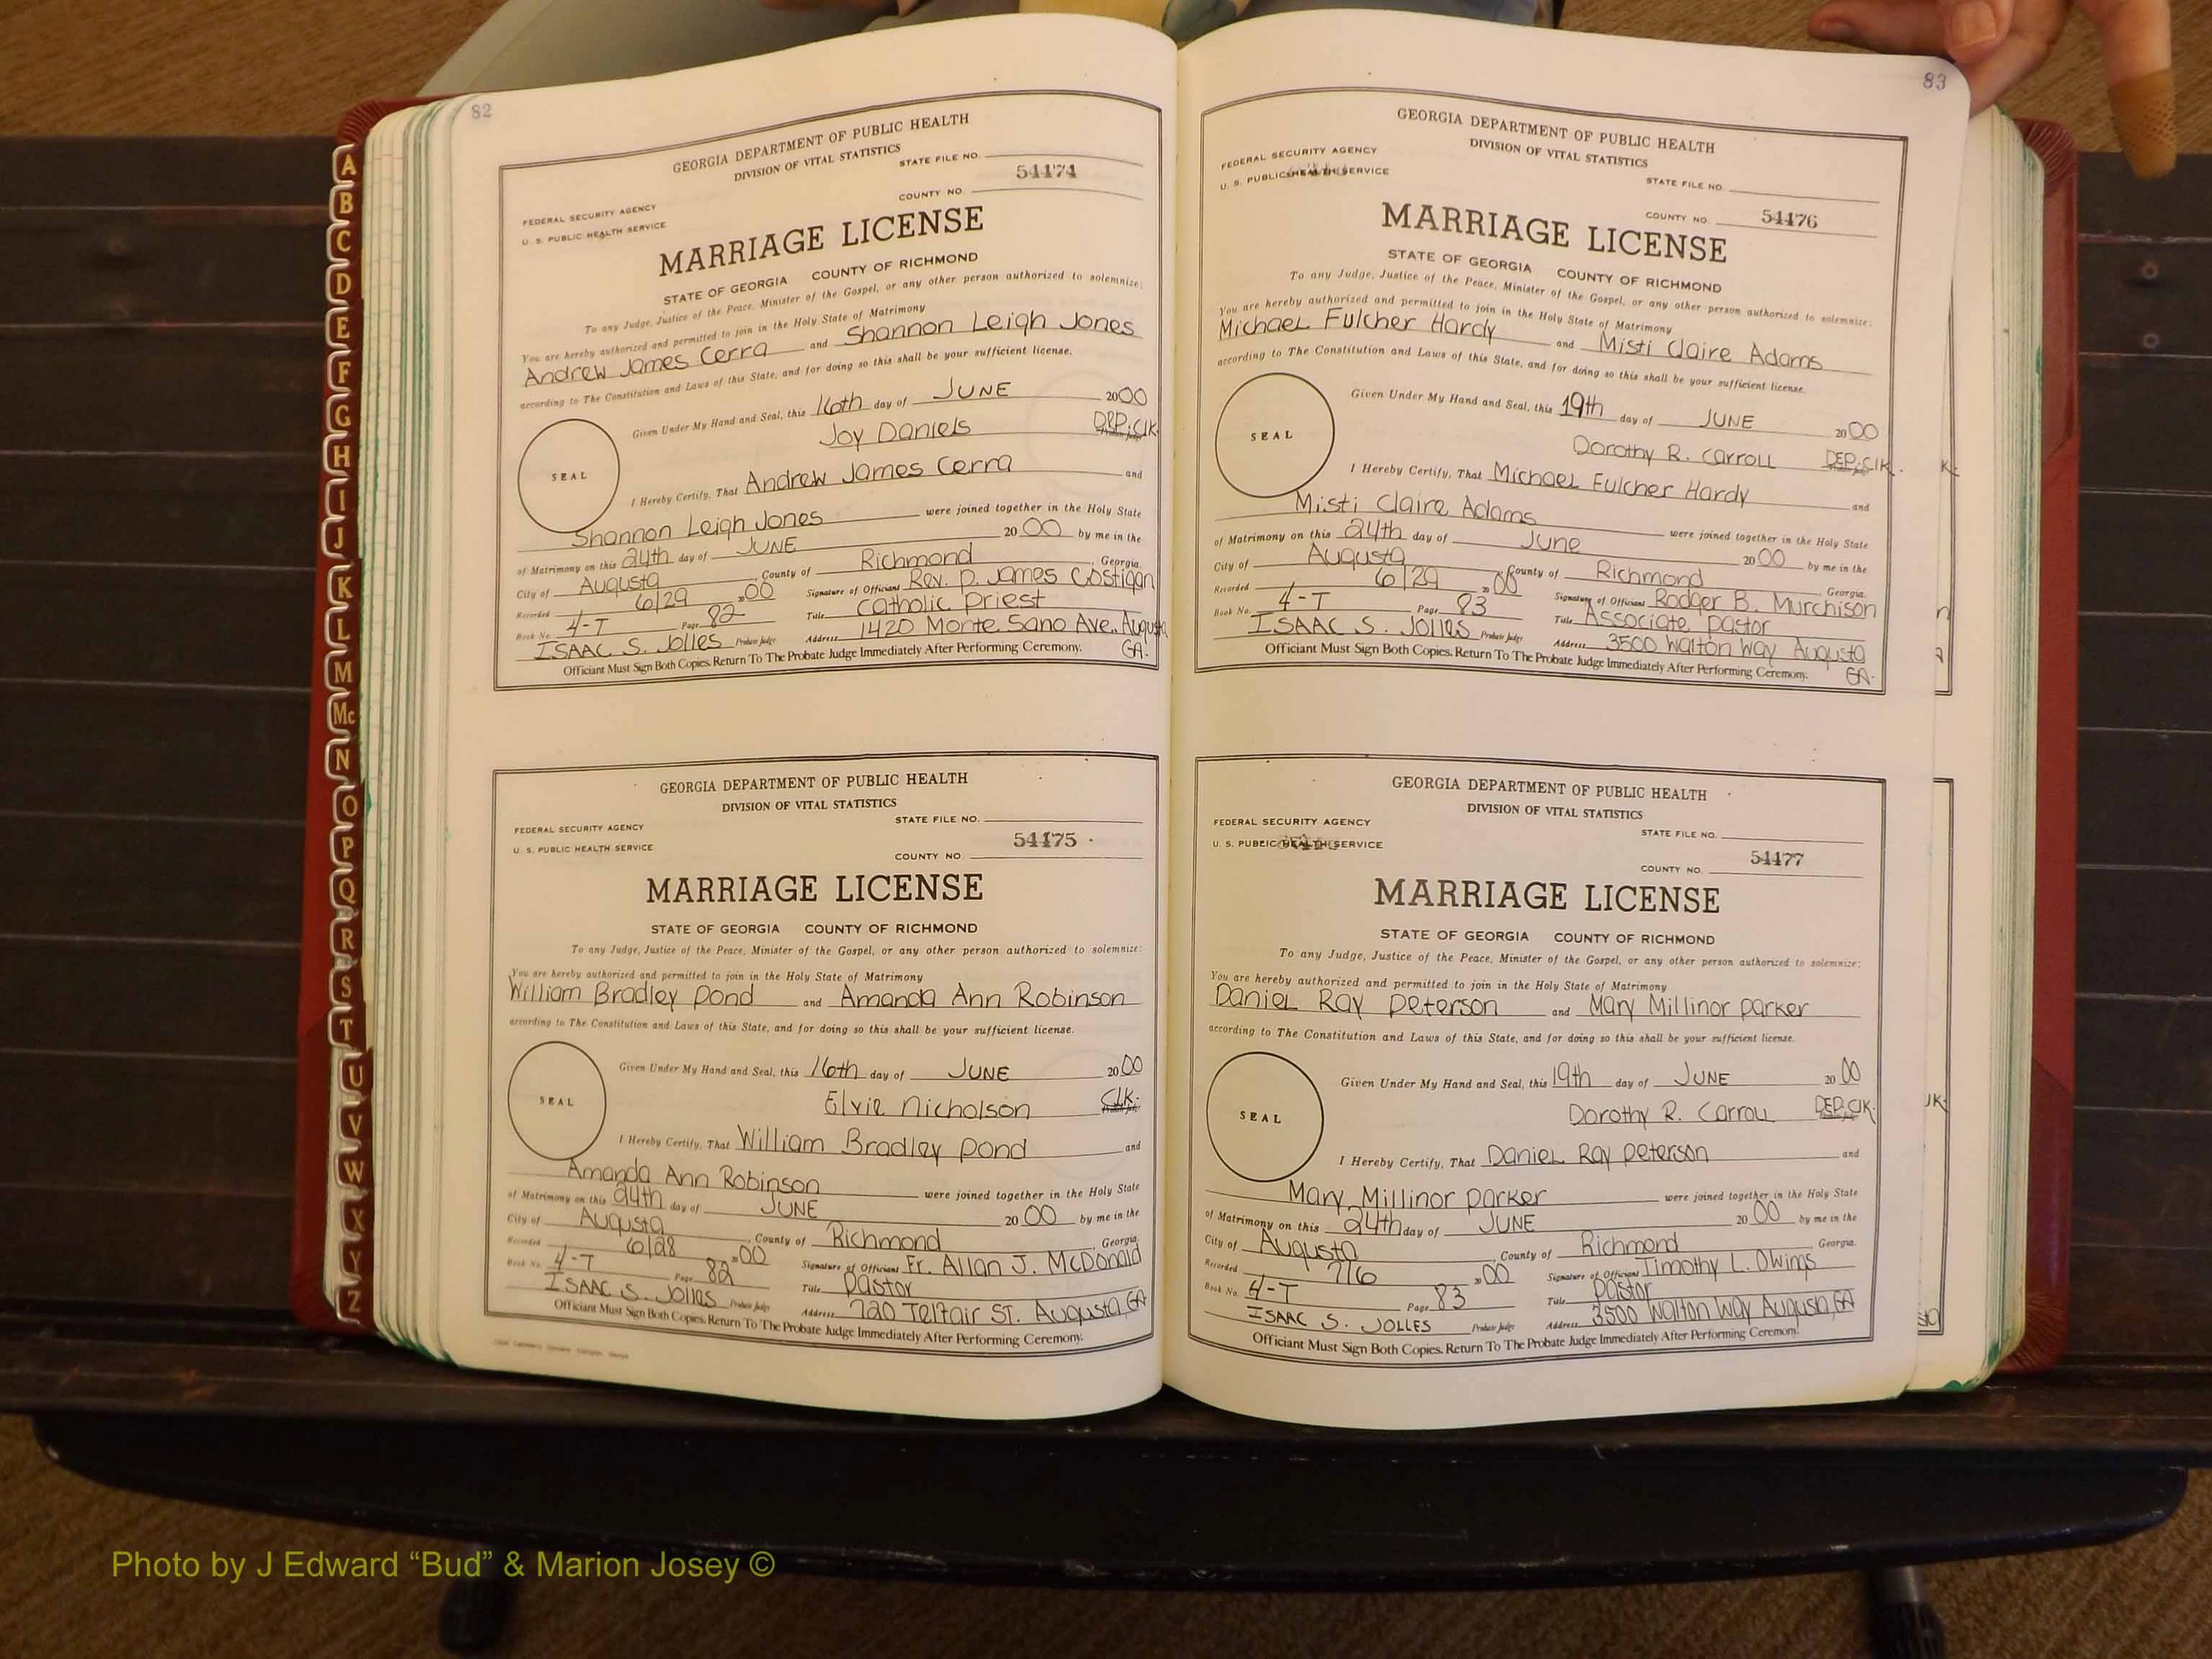 A
B
C
D
E
F
G
H
I
J
K
L
M
Mc
N
O
P
Q
R
S
T
U
V
W
X
Y
Z
82
GEORGIA DEPARTMENT OF PUBLIC HEALTH
DIVISION OF VITAL STATISTICS
STATE FILE NO.
54474
COUNTY NO.
FEDERAL SECURITY AGENCY
U. S. PUBLIC HEALTH SERVICE
MARRIAGE LICENSE
STATE OF GEORGIA COUNTY OF RICHMOND
To any Judge, Justice of the Peace, Minister of the Gospel, or any other person authorized to solemnize:
You are hereby authorized and permitted to join in the Holy State of Matrimony
Andrew James Cerra and Shannon Leigh Jones
according to The Constitution and Laws of this State, and for doing so this shall be your sufficient license.
Given Under My Hand and Seal, this 16th day of JUNE 2000
Joy Daniels DEP. Clk.
SEAL
I Hereby Certify, That Andrew James Cerra and
Shannon Leigh Jones were joined together in the Holy State
of Matrimony on this 24th day of JUNE 2000 by me in the
City of Augusta, County of Richmond, Georgia.
Recorded 6/29 2000 Signature of Officiant Rev. P. James Costigan
Book No. 4-T Page 82 Title Catholic Priest
ISAAC S. Jolles Probate Judge Address 1420 Monte Sano Ave., Augusta GA.
Officiant Must Sign Both Copies. Return To The Probate Judge Immediately After Performing Ceremony.
GEORGIA DEPARTMENT OF PUBLIC HEALTH
DIVISION OF VITAL STATISTICS
STATE FILE NO.
FEDERAL SECURITY AGENCY
54475
U. S. PUBLIC HEALTH SERVICE
COUNTY NO.
MARRIAGE LICENSE
STATE OF GEORGIA COUNTY OF RICHMOND
To any Judge, Justice of the Peace, Minister of the Gospel, or any other person authorized to solemnize:
You are hereby authorized and permitted to join in the Holy State of Matrimony
William Bradley Pond and Amanda Ann Robinson
according to The Constitution and Laws of this State, and for doing so this shall be your sufficient license.
Given Under My Hand and Seal, this 16th day of JUNE 2000
Elvie Nicholson Clk.
SEAL
I Hereby Certify, That William Bradley Pond and
Amanda Ann Robinson were joined together in the Holy State
of Matrimony on this 24th day of JUNE 2000 by me in the
City of Augusta, County of Richmond, Georgia.
Recorded 6/28 2000 Signature of Officiant Fr. Allan J. McDonald
Book No. 4-T Page 82 Title Pastor
ISAAC S. Jolles Probate Judge Address 720 Telfair ST. Augusta, GA
Officiant Must Sign Both Copies. Return To The Probate Judge Immediately After Performing Ceremony.
83
GEORGIA DEPARTMENT OF PUBLIC HEALTH
DIVISION OF VITAL STATISTICS
FEDERAL SECURITY AGENCY
U. S. PUBLIC HEALTH SERVICE
STATE FILE NO.
COUNTY NO. 54476
MARRIAGE LICENSE
STATE OF GEORGIA COUNTY OF RICHMOND
To any Judge, Justice of the Peace, Minister of the Gospel, or any other person authorized to solemnize:
You are hereby authorized and permitted to join in the Holy State of Matrimony
Michael Fulcher Hardy and Misti Claire Adams
according to The Constitution and Laws of this State, and for doing so this shall be your sufficient license.
Given Under My Hand and Seal, this 19th day of JUNE 2000
Dorothy R. Carroll DEP. Clk.
SEAL
I Hereby Certify, That Michael Fulcher Hardy and
Misti Claire Adams were joined together in the Holy State
of Matrimony on this 24th day of June 2000 by me in the
City of Augusta, County of Richmond, Georgia.
Recorded 6/29 2000 Signature of Officiant Rodger B. Murchison
Book No. 4-T Page 83 Title Associate Pastor
ISAAC S. Jolles Probate Judge Address 3500 Walton Way Augusta GA.
Officiant Must Sign Both Copies. Return To The Probate Judge Immediately After Performing Ceremony.
GEORGIA DEPARTMENT OF PUBLIC HEALTH
DIVISION OF VITAL STATISTICS
FEDERAL SECURITY AGENCY
STATE FILE NO.
U. S. PUBLIC HEALTH SERVICE
COUNTY NO. 54477
MARRIAGE LICENSE
STATE OF GEORGIA COUNTY OF RICHMOND
To any Judge, Justice of the Peace, Minister of the Gospel, or any other person authorized to solemnize:
You are hereby authorized and permitted to join in the Holy State of Matrimony
Daniel Ray Peterson and Mary Millinor Parker
according to The Constitution and Laws of this State, and for doing so this shall be your sufficient license.
Given Under My Hand and Seal, this 19th day of JUNE 2000
Dorothy R. Carroll DEP. Clk.
SEAL
I Hereby Certify, That Daniel Ray Peterson and
Mary Millinor Parker were joined together in the Holy State
of Matrimony on this 24th day of JUNE 2000 by me in the
City of Augusta, County of Richmond Georgia.
Recorded 7/6 2000 Signature of Officiant Timothy L. Owings
Book No. 4-T Page 83 Title Pastor
ISAAC S. JOLLES Probate Judge Address 3500 Walton Way Augusta, GA
Officiant Must Sign Both Copies. Return To The Probate Judge Immediately After Performing Ceremony.
Photo by J Edward “Bud” & Marion Josey ©